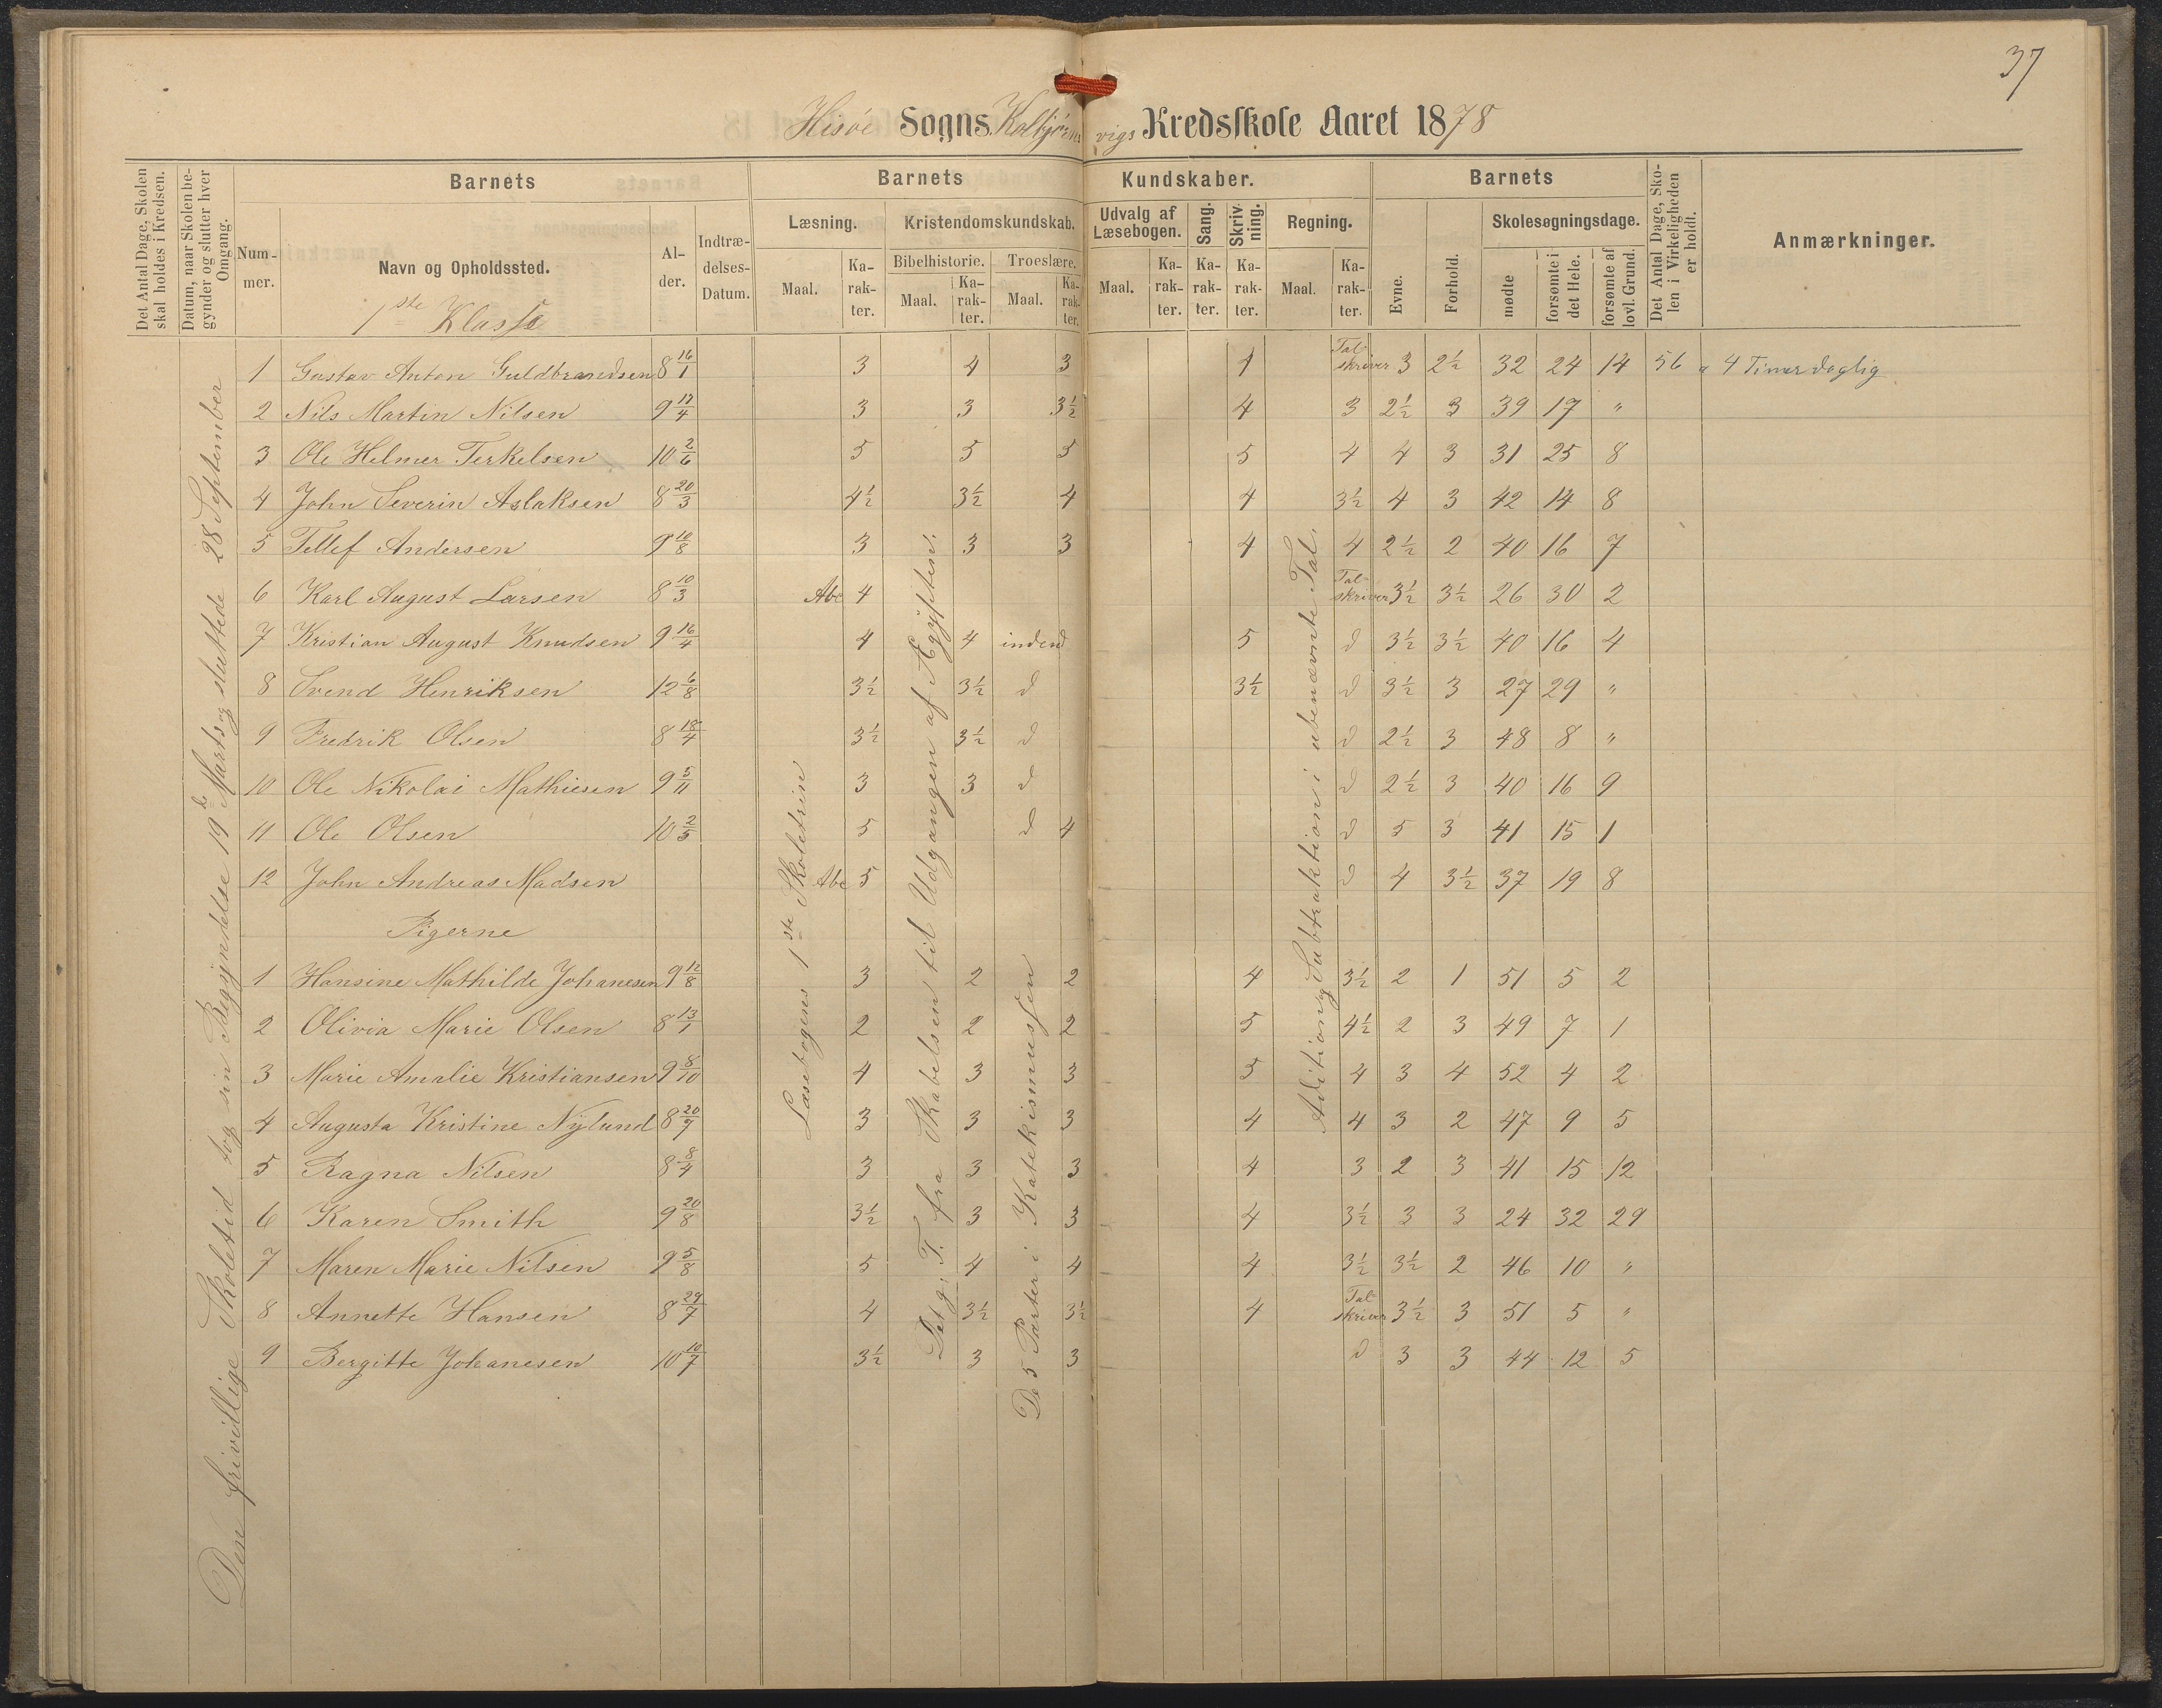 37
Hisøe Sogns Kolbjørnsvigs Kredsskole Aaret 1878
Det Antal Dage, Skolen skal holdes i Kredsen.
Datum, naar Skolen begynder og slutter hver Omgang.
Barnets
Num-mer.
Navn og Opholdssted.
Al-der.
Indtræ-delses-Datum.
Barnets Kundskaber.
Læsning.
Maal.
Ka-rak-ter.
Kristendomskundskab.
Bibelhistorie.
Maal.
Ka-rak-ter.
Troeslære.
Maal.
Ka-rak-ter.
Udvalg af Læsebogen.
Maal.
Ka-rak-ter.
Sang.
Ka-rak-ter.
Skriv-ning.
Ka-rak-ter.
Regning.
Maal.
Ka-rak-ter.
Barnets
Evne.
Forhold.
Skolesøgningsdage.
mødte
forsømte i det Hele.
forsømte af lovl. Grund.
Det Antal Dage, Skolen i Virkeligheden er holdt.
Anmærkninger.
1ste Klasse
1 Gustav Anton Guldbrandsen 8 16/1 3 4 3 1 Tal-skriver 3 2½ 32 24 14 56 a 4 Timer daglig
2 Nils Martin Nilsen 9 17/4 3 3 3½ 4 3 2½ 3 39 17 "
3 Ole Helmer Terkelsen 10 2/6 5 5 5 5 4 4 3 31 25 8
4 John Severin Aslaksen 8 20/3 4½ 3½ 4 4 3½ 4 3 42 14 8
5 Tellef Andersen 9 10/8 3 3 3 4 4 2½ 2 40 16 7
6 Karl August Larsen 8 10/3 Abc 4 Tal-skriver 3½ 3½ 26 30 2
7 Kristian August Knudsen 9 16/4 4 4 indend 5 d 3½ 3½ 40 16 4
8 Svend Henriksen 12 6/8 3½ 3½ d 3½ d 3½ 3 27 29 "
9 Fredrik Olsen 8 18/4 3½ 3½ d d 2½ 3 48 8 "
10 Ole Nikolai Mathiesen 9 5/11 3 3 d d 2½ 3 40 16 9
11 Ole Olsen 10 2/5 5 d 4 d 5 3 41 15 1
12 John Andreas Madsen Abc 5 d 4 3½ 37 19 8
Pigerne
1 Hansine Mathilde Johanesen 9 12/8 3 2 2 4 3½ 2 1 51 5 2
2 Olivia Marie Olsen 8 13/1 2 2 2 5 4½ 2 3 49 7 1
3 Marie Amalie Kristiansen 9 8/10 4 3 3 5 4 3 4 52 4 2
4 Augusta Kristine Nylund 8 20/9 3 3 3 4 4 3 2 47 9 5
5 Ragna Nilsen 8 8/4 3 3 3 4 3 2 3 41 15 12
6 Karen Smith 9 20/8 3½ 3 3 4 3½ 3 3 24 32 29
7 Maren Marie Nilsen 9 5/8 5 4 4 4 3½ 3½ 2 46 10 "
8 Annette Hansen 8 29/7 4 3½ 3½ 4 Tal-skriver 3½ 3 51 5 "
9 Bergitte Johanesen 10 10/7 3½ 3 3 d 3 3 44 12 5
Dene frivillige Skoletid tog sin Begyndelse 19de Marts og sluttede 28 September
Læsebogens 1ste Skoletrin
Det g. T. fra Skabelsen til Udgangen af Ægypten.
De 5 Parter i Katekismussen
Adition og Subtraktion i ubenævnte Tal.